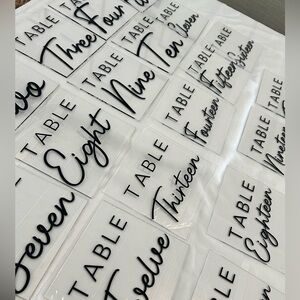 TABLE
Three
Four
TABLE
Ten
TABLE
Nine
TABLE
Sixteen
TABLE
Fifteen
TABLE
Fourteen
TABLE
Nineteen
TABLE
Eight
TABLE
Thirteen
TABLE
Eighteen
Seven
TABLE
Twelve
TABLE